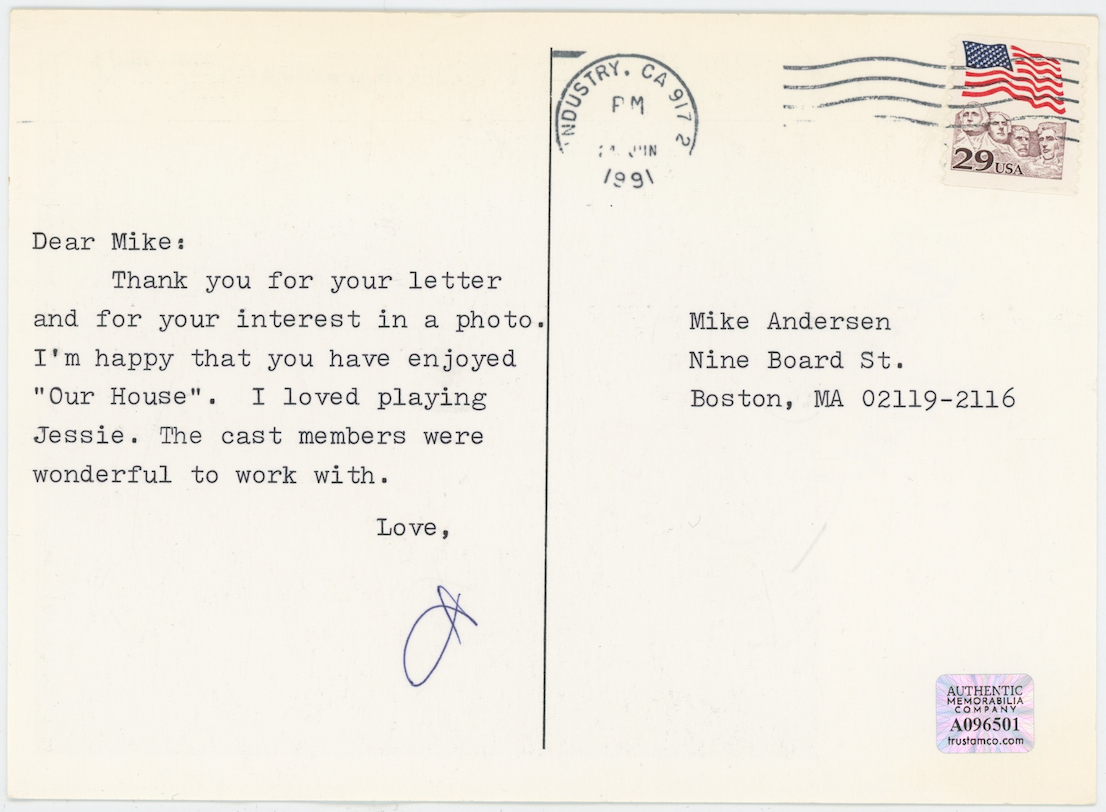 INDUSTRY, CA 917 2
PM
JUN
1991
29 USA
Dear Mike:
Thank you for your letter
and for your interest in a photo.
I'm happy that you have enjoyed
"Our House". I loved playing
Jessie. The cast members were
wonderful to work with.
Love,
Mike Andersen
Nine Board St.
Boston, MA 02119-2116
AUTHENTIC
MEMORABILIA
COMPANY
A096501
trustamco.com